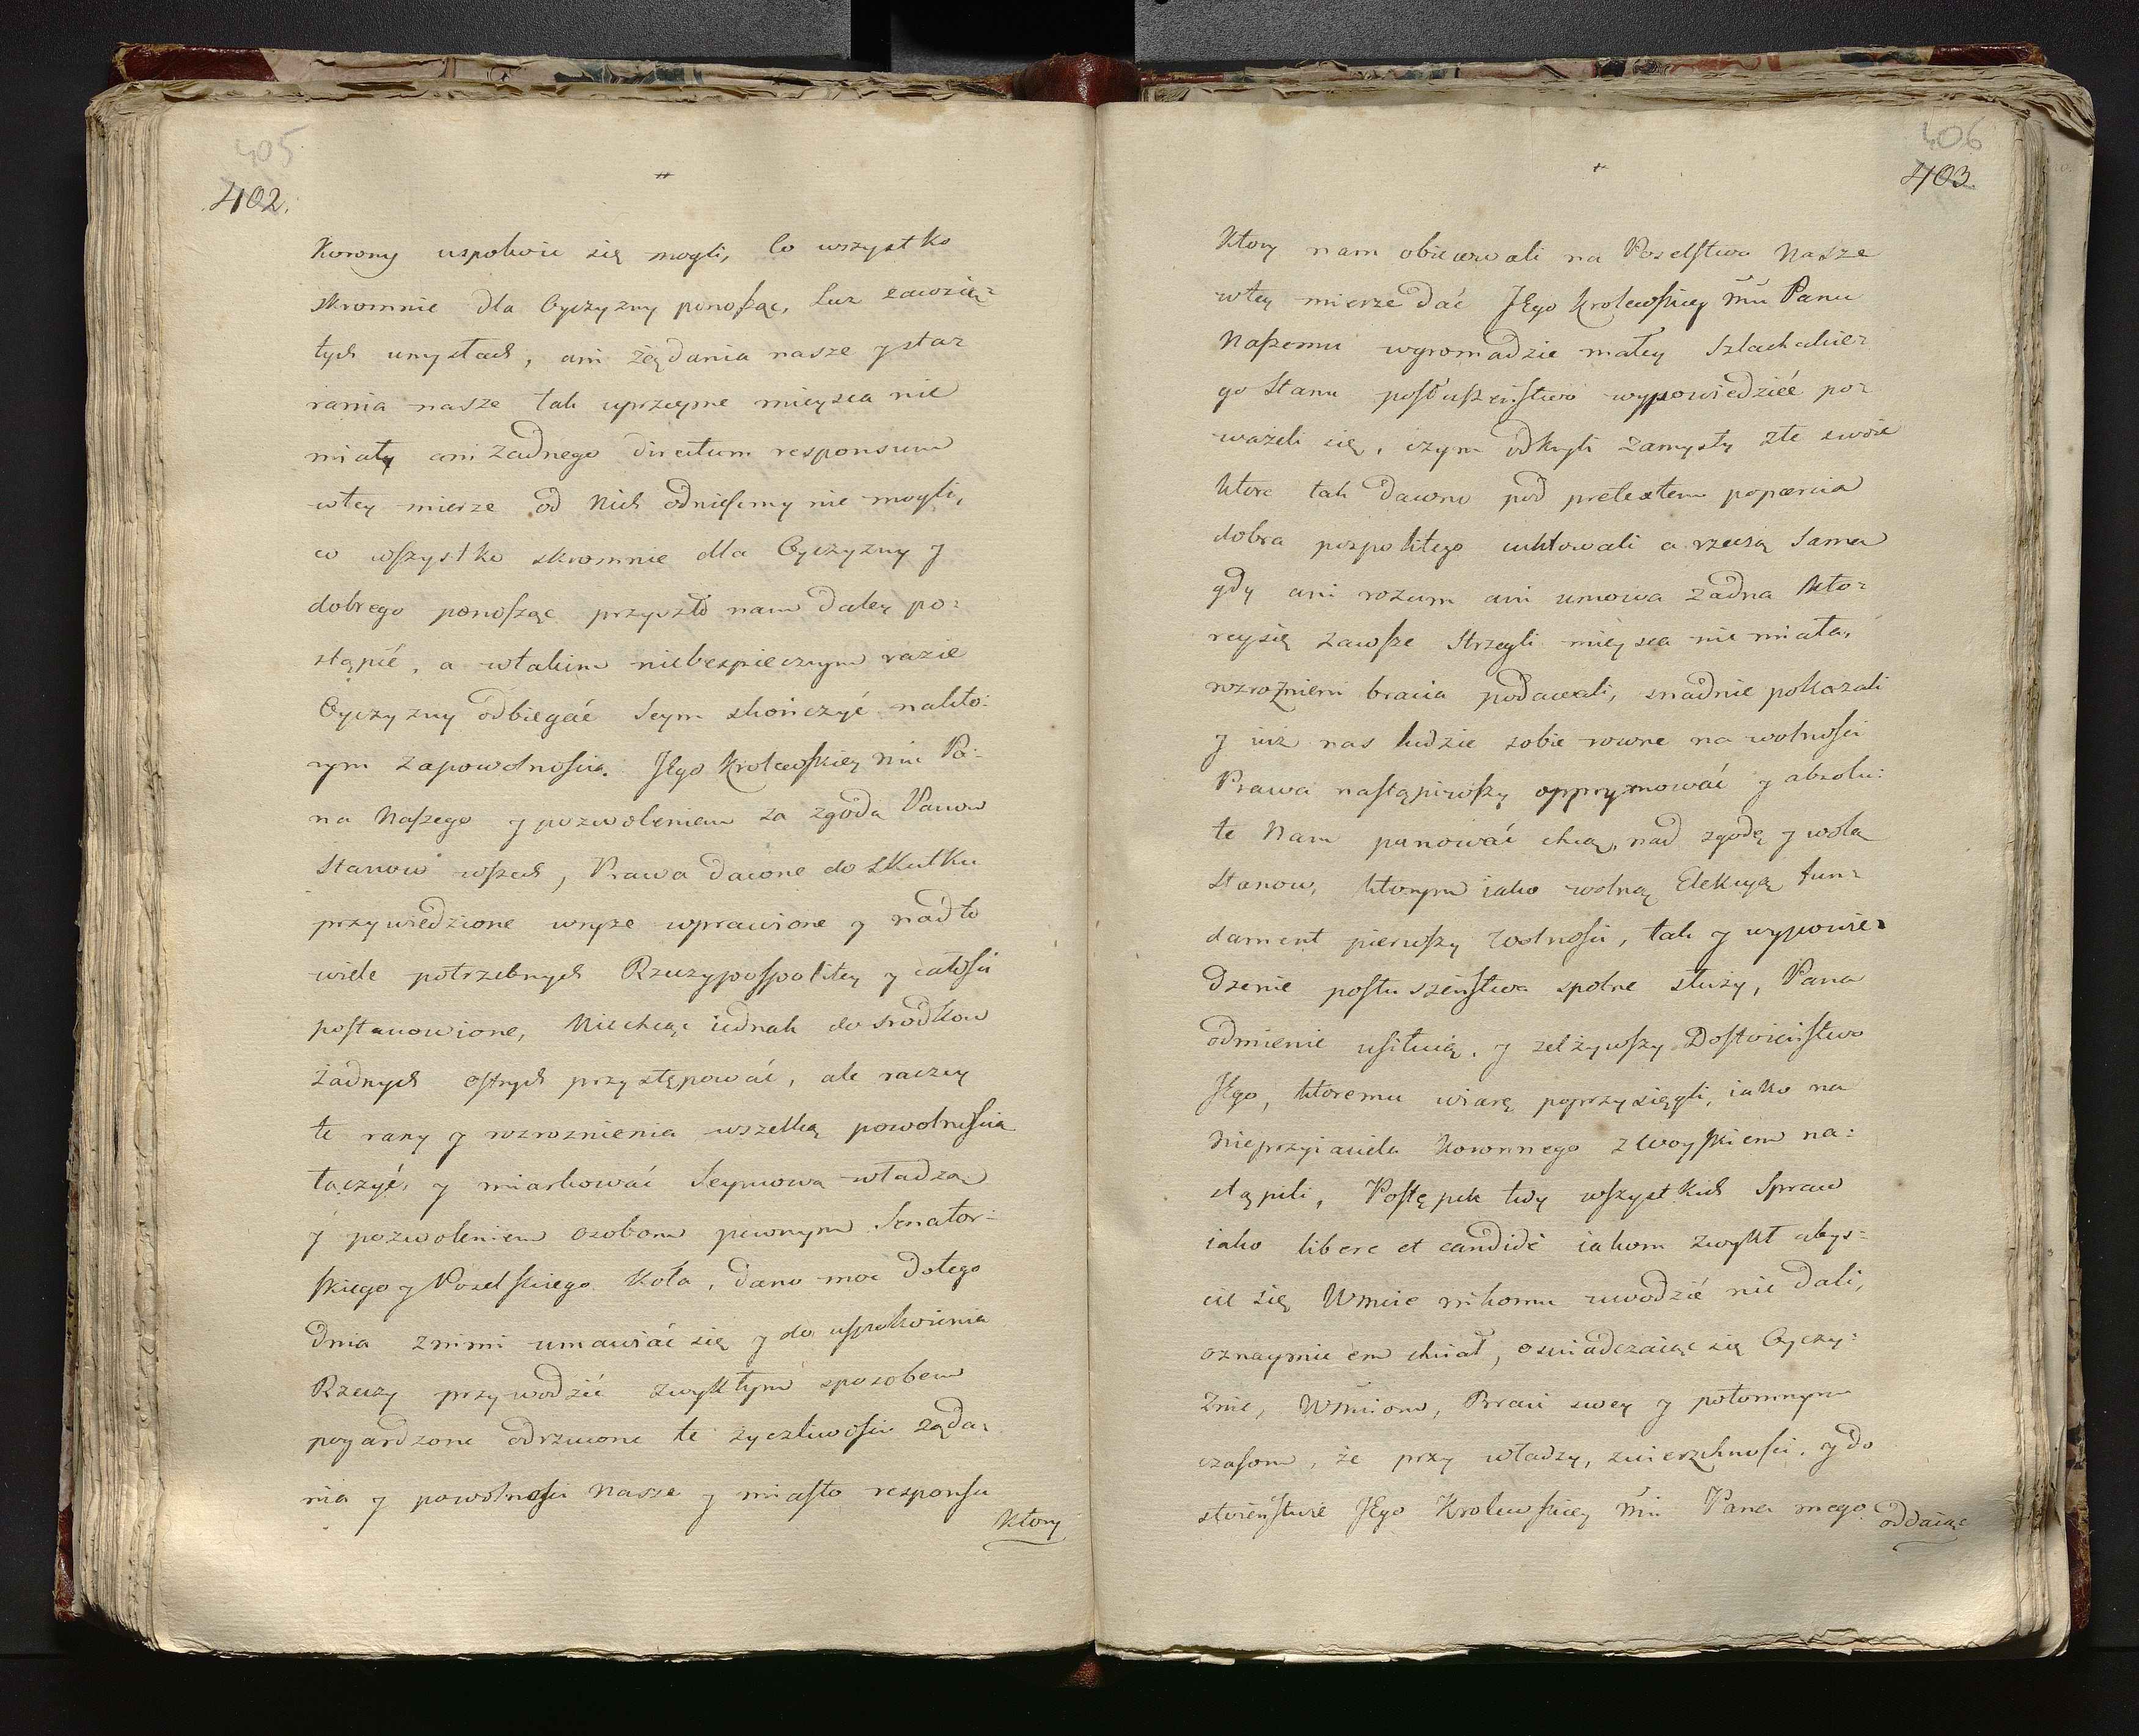 405
402.
Korony uspokoic się mogli, Co wszystko
skromnie dla Oyczyzny ponosząc, lecz zawzię=
tych umysłach, ani żądania nasze y sta=
rania nasze tak uprzeyme mieysca nie
miały ani żadnego directum responsum
wtey mierze od Nich odnieśmy nie mogli,
co wszystko skromnie dla Oyczyzny y
dobrego ponosząc przyszło nam daley po=
stąpić, a wtakim niebespiecznym razie
Oyczyzny odbiegać Seym skończyć nakto=
rym zapowolnością. JEgo Krolewskiey Mci Pa=
na Naszego y pozwoleniem za zgodą Panow
Stanow wszech, Prawa dawne do Skutku
przywiedzione wryze wprawione y nadto
wiele potrzebnych Rzeczypospolitey y całości
postanowione, Niechcąc iednak do srodkow
żadnych ostrych przystępować, ale raczey
te rany y rozroznienia wszelką powolnością
łączyć, y miarkować Seymową władzą
y pozwoleniem osobom pewnym Senator=
skiego y Poselskiego Koła, dano moc dotego
dnia znimi umawiać się y do uspokoienia
Rzeczy przywodzić zwykłym sposobem
pogardzone odrzucone te życzliwości żąda=
nia y powolności Nasze y miasto responsu
Ktory
406
403.
Ktory nam obiecowali na Poselstwo Nasze
wtey mierze dać JEgo Krolewskiey Mci Panu
Naszemu wgromadzie małey Szlacheckie=
go Stanu posłuszeństwo wypowiedzieć po=
ważeli się, czym odkryli zamysły złe swoie
ktore tak dawno pod pretextem poparcia
dobra pospolitego cuktowali a rzeczą Samą
gdy ani rozum ani umowa żadna kto=
reysię zawsze Strzegli mieysca nie miała,
rozroznieni bracia podawali, snadnie pokazali
y iuż nas ludzie sobie rowne na wolności
Prawa nastąpiwszy opprymować y absolu=
te Nam panować chcą, nad zgodę y wolą
Stanow, ktorym iako wolną Elekcyą fun=
dament pierwszy wolności, tak y wypowie=
dzenie posłuszeństwa spolne służy, Pana
odmienie usiłuią, y zelżywszy Dostoieństwo
JEgo, ktoremu wiarę poprzysięgli, iako na
Nieprzyiaciela Koronnego z woyskiem na=
stąpili, Postępek tedy wszystkich Spraw
iako libere et candidè iakom zwykł abys=
cie się Wmcie nikomu uwodzić nie dali,
oznaymić em chciał, oswiadczaiąc się Oyczy=
znie, Wmciom, Braci swey y potomnym
czasom, że przy władzy, zwierzchności, y do
stoieństwie JEgo Krolewskiey Mci Pana mego
oddaiąc